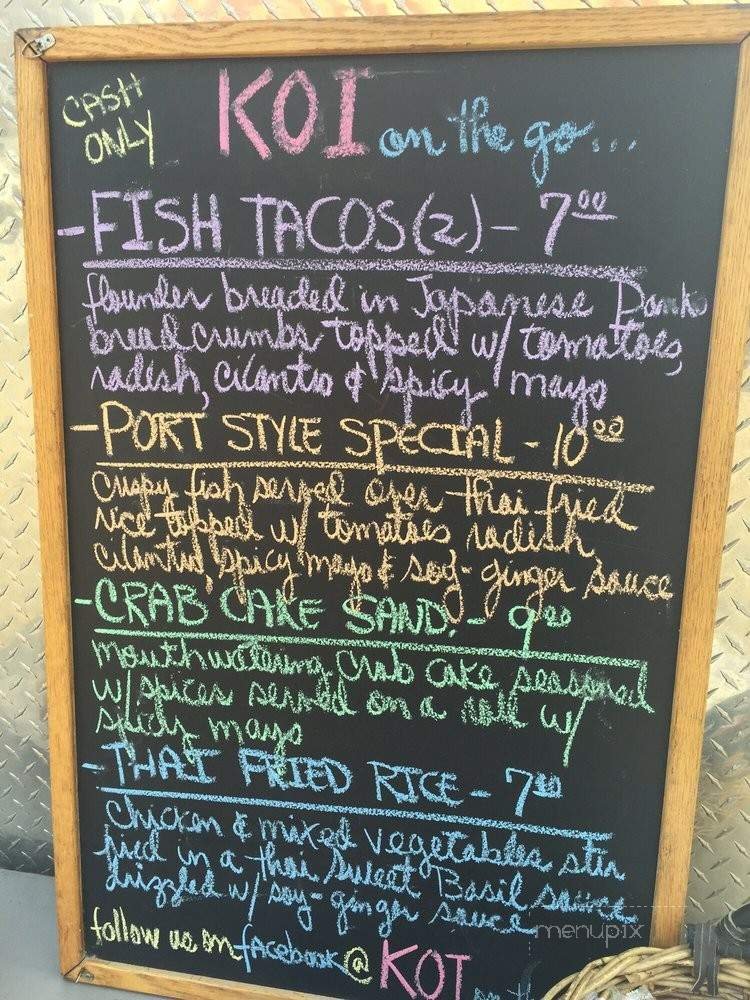 CASH
ONLY
KOI on the go...
- FISH TACOS (2) - 7.00
flounder breaded in Japanese Panko
breadcrumbs topped w/ tomatoes,
radish, cilantro & spicy mayo
- PORT STYLE SPECIAL - 10.00
crispy fish served over thai fried
rice topped w/ tomatoes radish
cilantro, spicy mayo & soy-ginger sauce
- CRAB CAKE SAND. - 9.00
mouthwatering crab cake seasoned
w/ spices served on a roll w/
spicy mayo
- THAI FRIED RICE - 7.00
chicken & mixed vegetables stir
fried in a thai Sweet Basil sauce
drizzled w/ soy-ginger sauce
follow us on facebook @ KOI on th
menupix